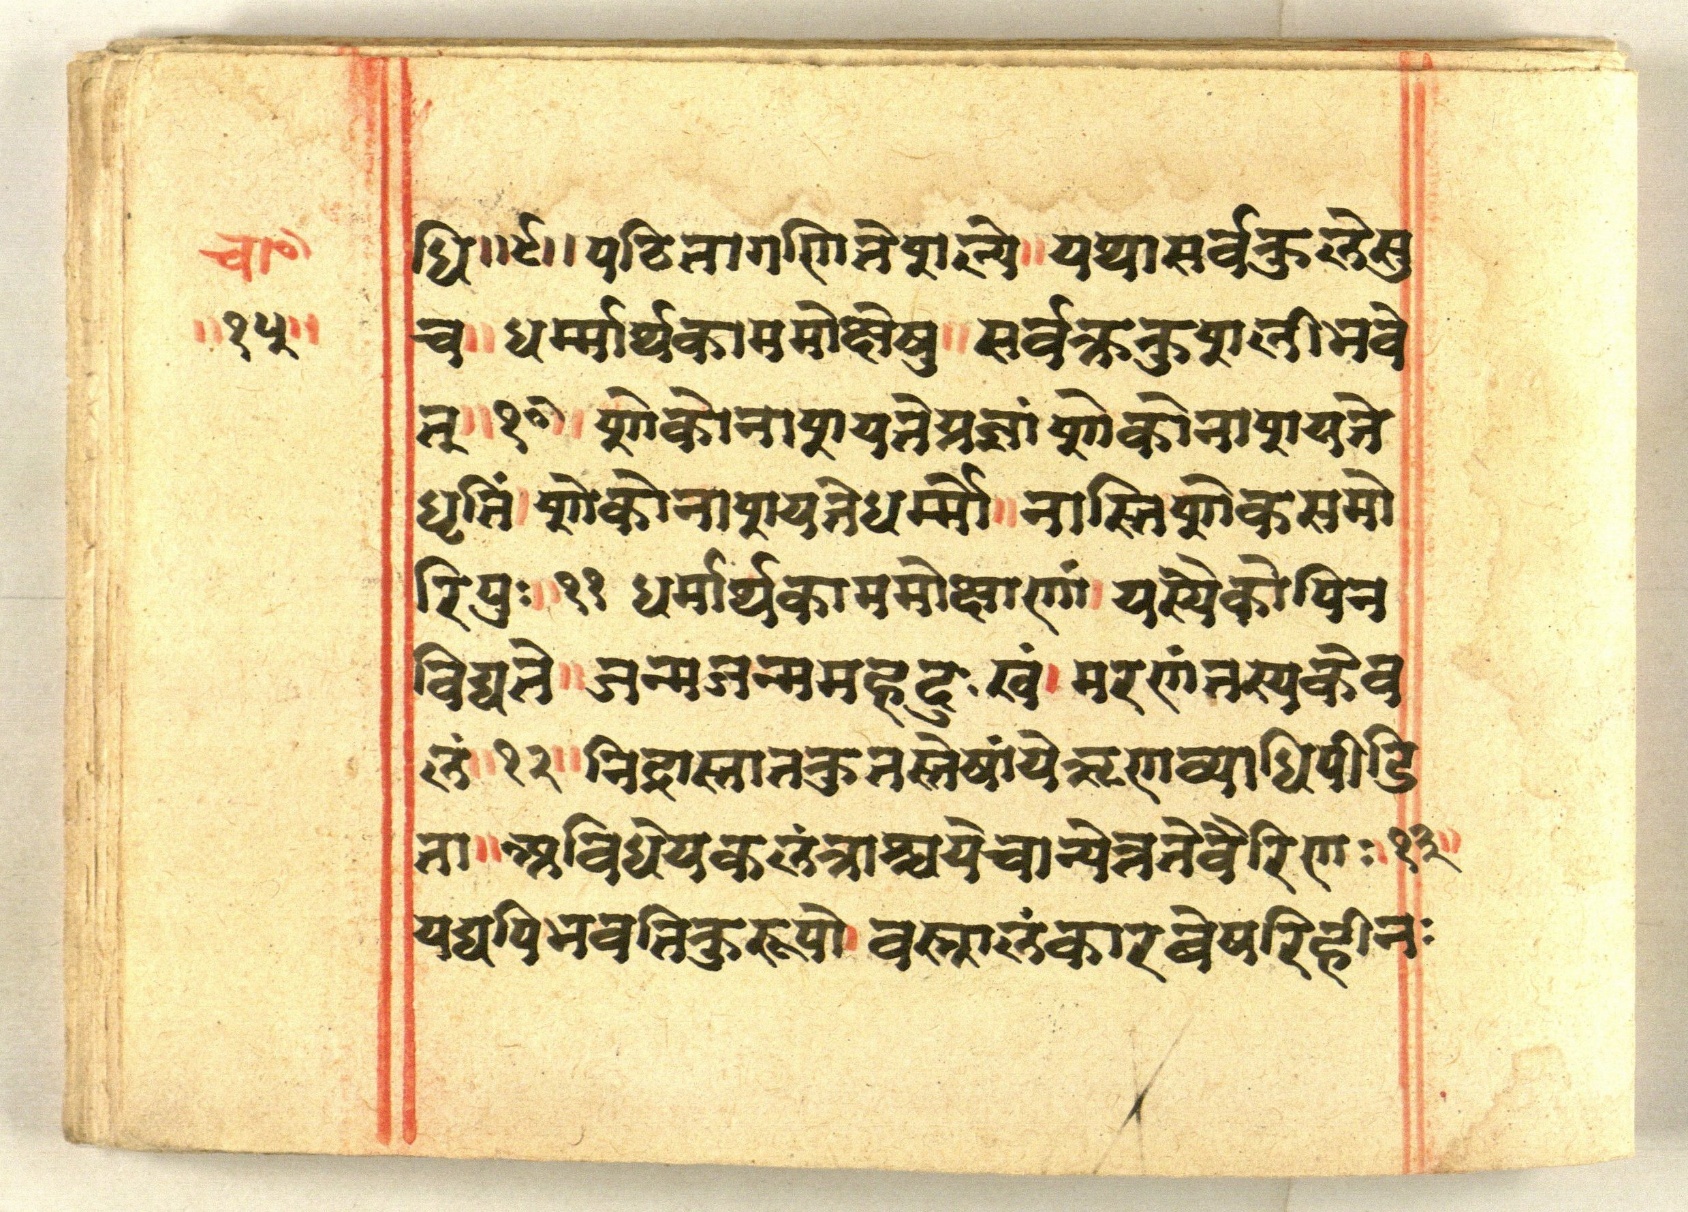 चा॰
॥१५॥
धि॥९॥पठितागणितेशल्ये॥यथासर्वकुलेसु
च॥धर्म्मार्थकाममोक्षेषु॥सर्वत्रकुशलीभवे
त्॥१०॥शोकोनाशयतेप्रज्ञांशोकोनाशयते
धृतिं।शोकोनाशयतेधर्म्मो॥नास्तिशोकसमो
रिपुः॥११धर्मार्थकाममोक्षाणां।यस्यैकोपिन
विद्यते॥जन्मजन्ममहदुःखं।मरणंतस्यकेव
लं॥१२॥निद्रास्तानकुतस्तेषांयेऋणव्याधिपीडि
ता॥अविधेयकलंत्राश्चयेचान्येन्नतेवैरिणः॥१३॥
यद्यपिभवतिकुरूपो।वस्त्रालंकारवेषपरिहीनः